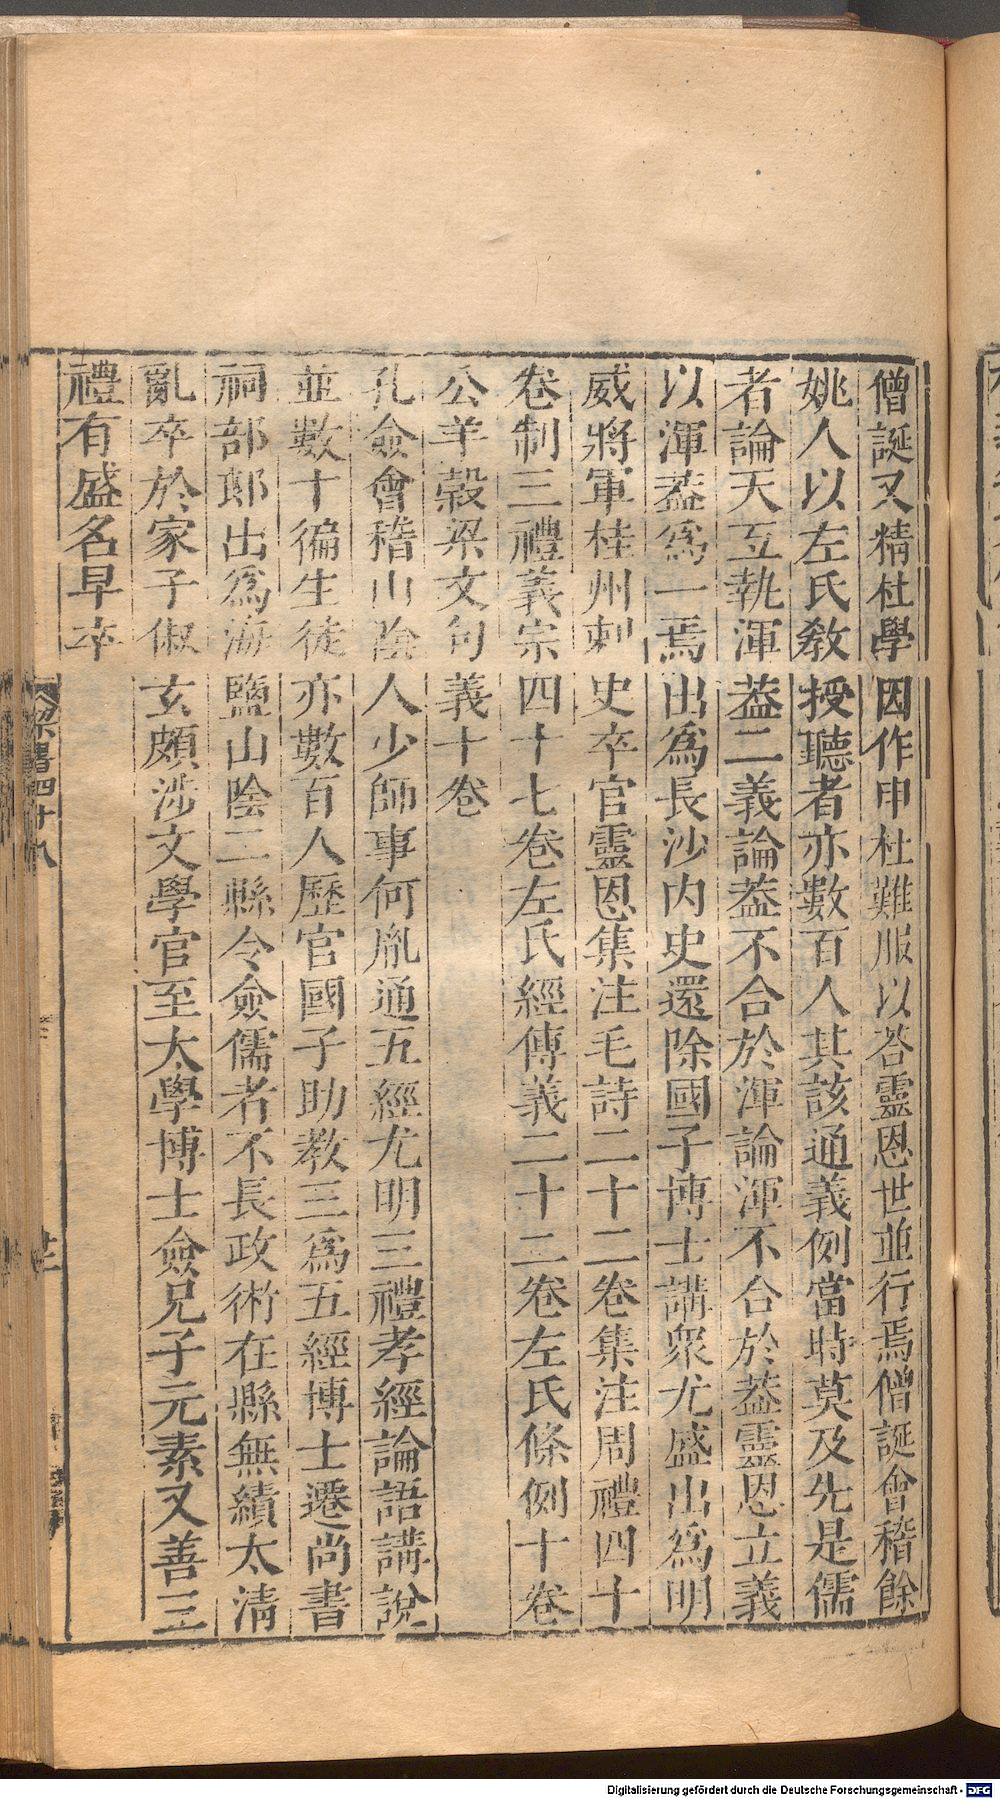 僧誕又精杜學因作申杜難服以荅靈恩世並行焉僧誕會稽餘
姚人以左氏教授聽者亦數百人其該通義例當時莫及先是儒
者論天互執渾蓋二義論蓋不合於渾論渾不合於蓋靈恩立義
以渾蓋爲一焉出爲長沙内史還除國子博士講衆尤盛出爲明
威將軍桂州刺史卒官靈恩集注毛詩二十二卷集注周禮四十
卷制三禮義宗四十七卷左氏經傳義二十二卷左氏條例十卷
公羊穀梁文句義十卷
孔僉會稽山陰人少師事何胤通五經尤明三禮孝經論語講說
並數十徧生徒亦數百人歷官國子助教三爲五經博士遷尚書
祠部郎出爲海鹽山陰二縣令僉儒者不長政術在縣無績太清
亂卒於家子俶玄頗涉文學官至太學博士僉兄子元素又善三
禮有盛名早卒
梁書四十八
Digitalisierung gefördert durch die Deutsche Forschungsgemeinschaft - DFG